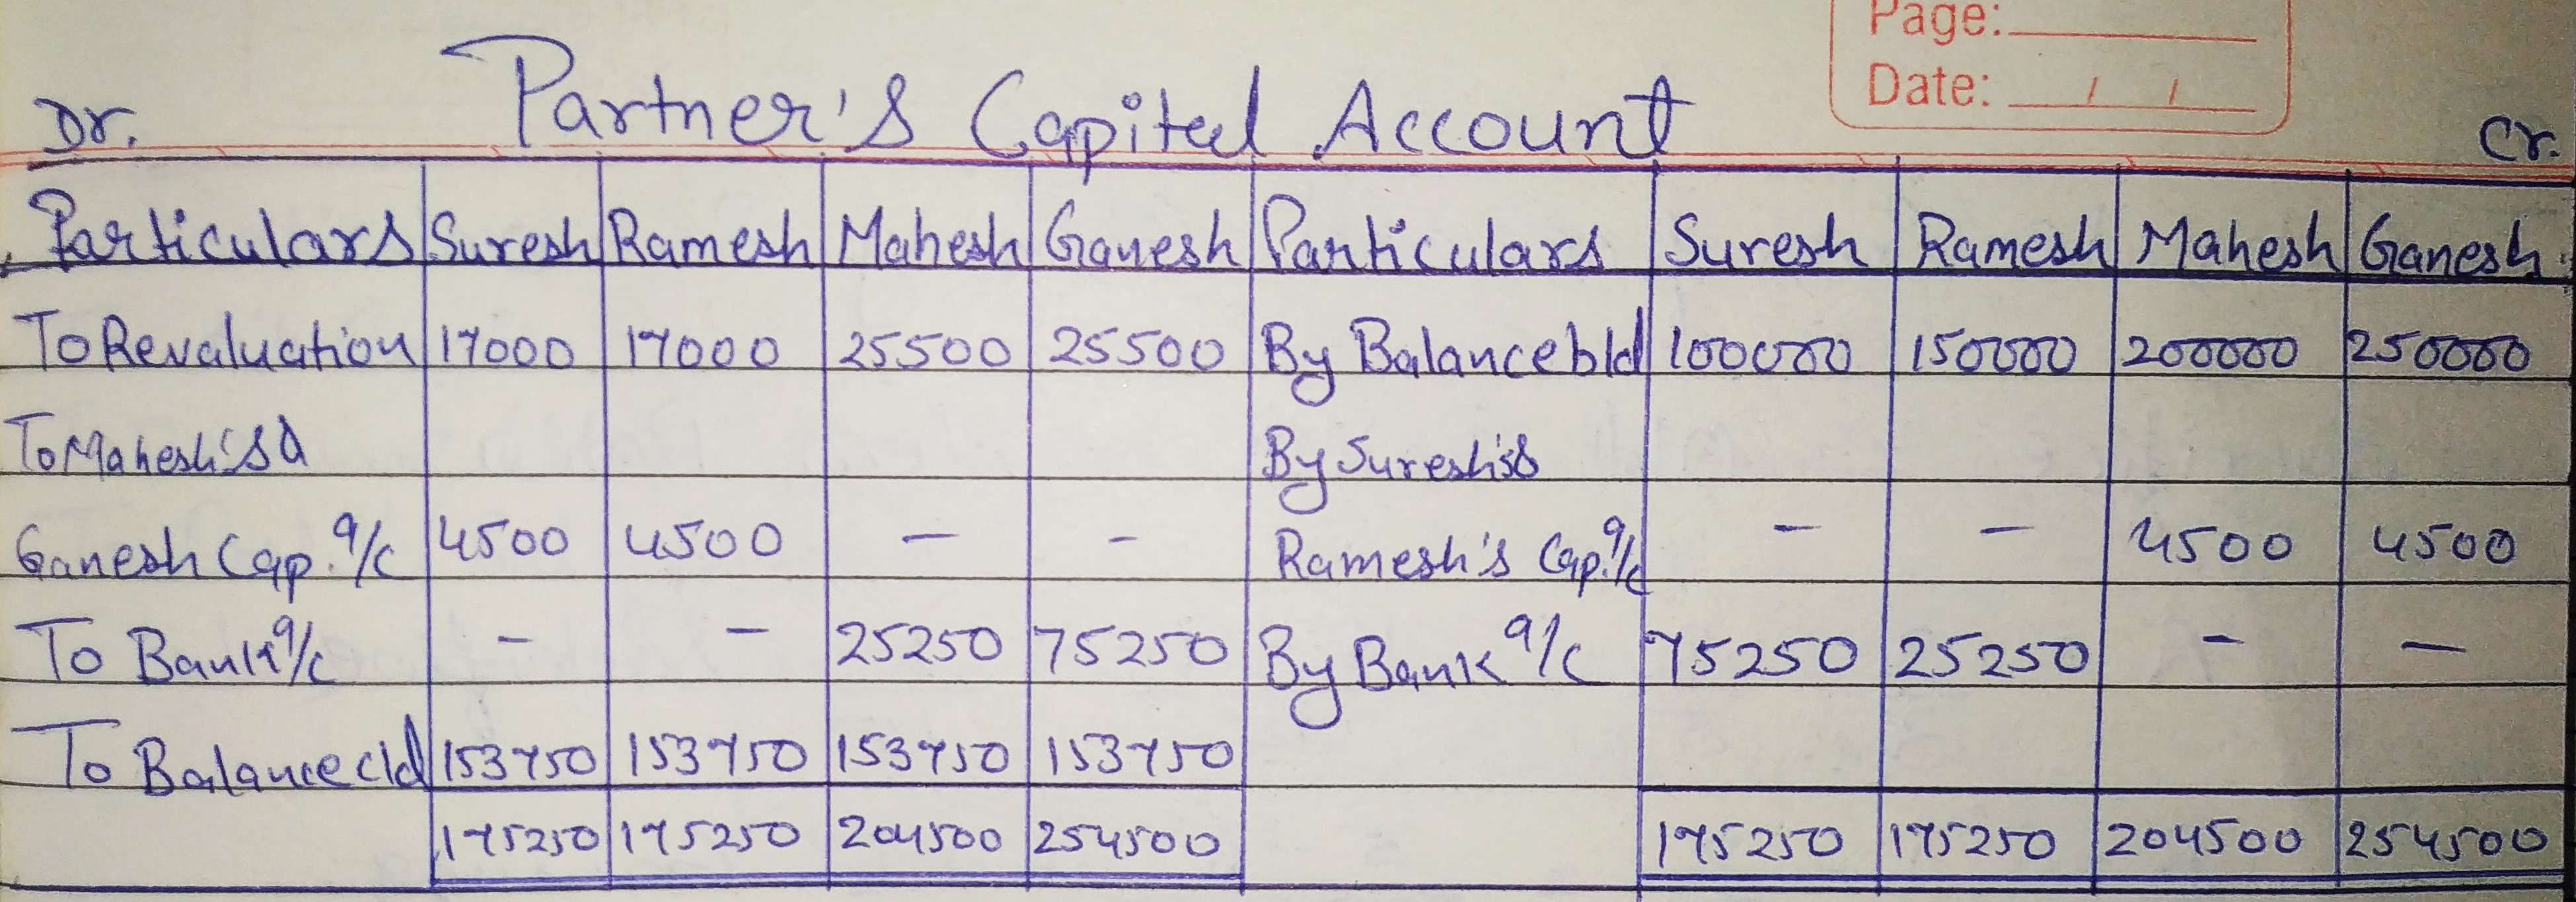 Page:
Date: / /
Dr. Partner's Capital Account Cr.
Particulars Suresh Ramesh Mahesh Ganesh Particulars Suresh Ramesh Mahesh Ganesh
To Revaluation 17000 17000 25500 25500 By Balance b/d 100000 150000 200000 250000
To Mahesh's & By Suresh's &
Ganesh Cap. a/c 4500 4500 - - Ramesh's Cap. a/c - - 4500 4500
To Bank a/c - - 25250 75250 By Bank a/c 75250 25250 - -
To Balance c/d 153750 153750 153750 153750
175250 175250 204500 254500 175250 175250 204500 254500